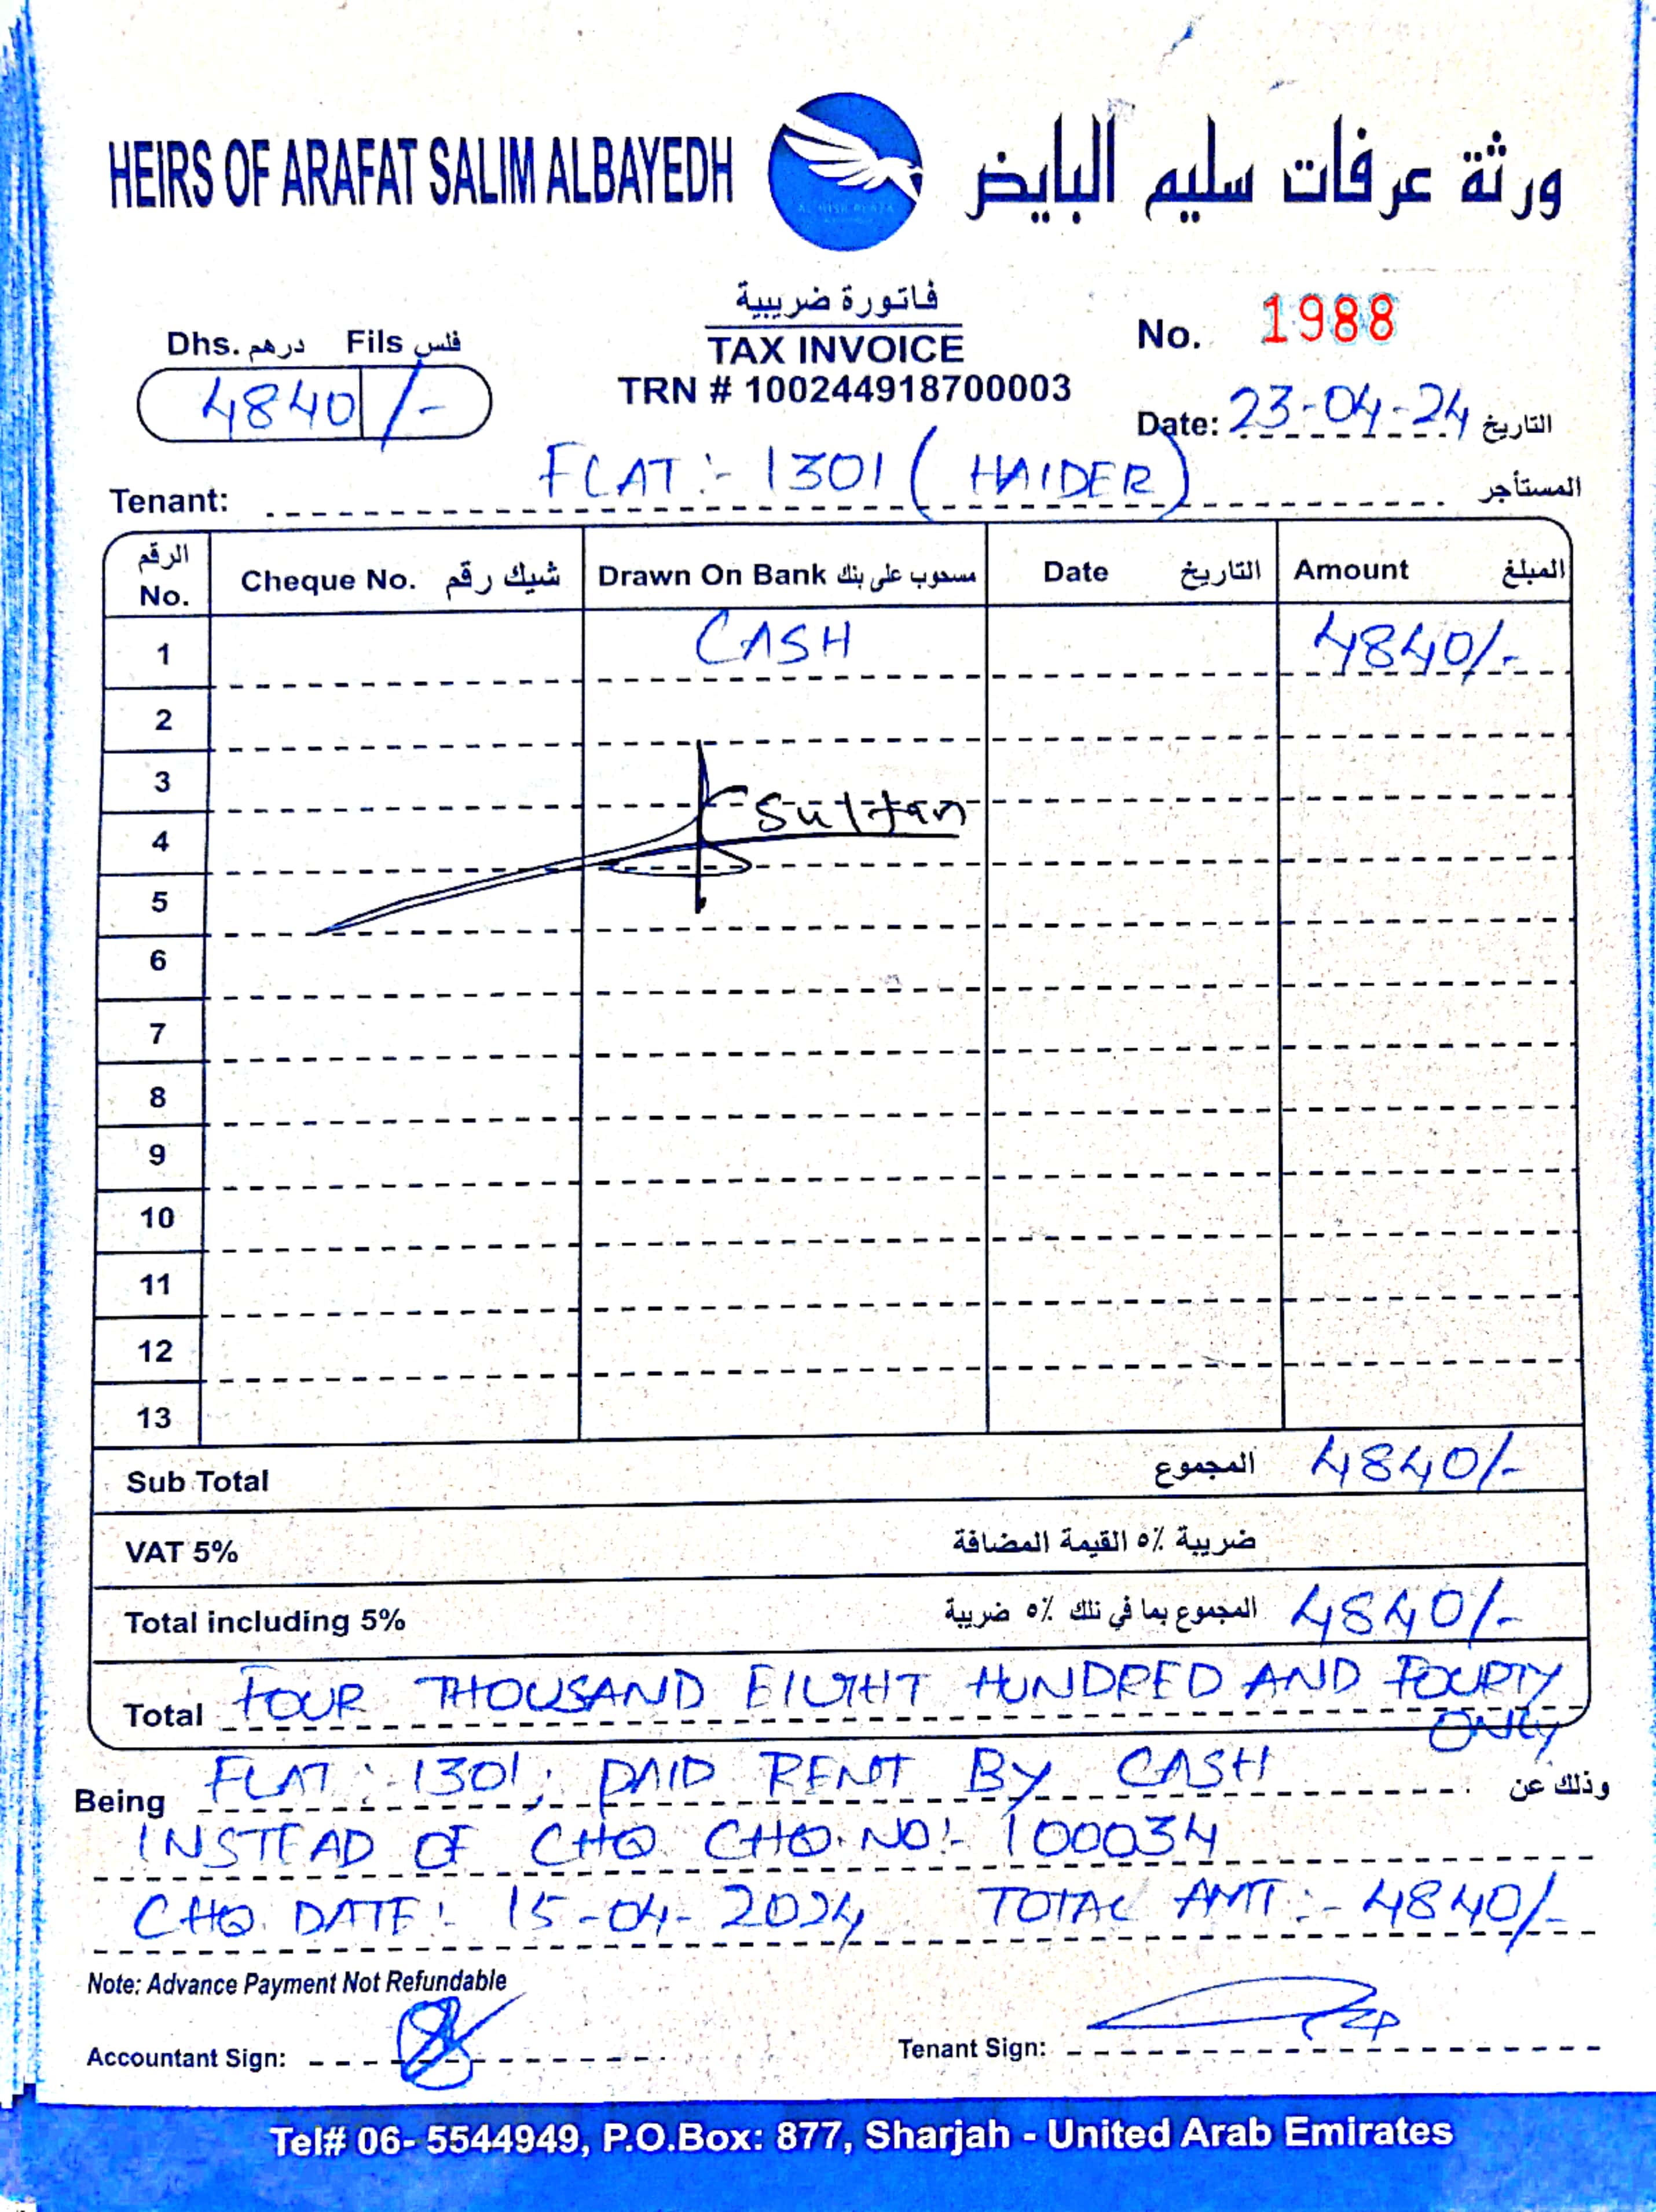 HEIRS OF ARAFAT SALIM ALBAYEDH ورثة عرفات سليم البايض
فاتورة ضريبية
TAX INVOICE
TRN # 100244918700003
Dhs. درهم Fils فلس
4840 /-
No. 1988
Date: 23-04-24 التاريخ
Tenant: FLAT:- 1301 (HAIDER) المستأجر
الرقم No. Cheque No. شيك رقم Drawn On Bank مسحوب على بنك Date التاريخ Amount المبلغ
1 CASH 4840/-
2
3
Sultan
4
5
6
7
8
9
10
11
12
13
Sub Total المجموع 4840/-
VAT 5% ضريبة ٥٪ القيمة المضافة
Total including 5% المجموع بما في تلك ٥٪ ضريبة 4840/-
Total FOUR THOUSAND EIGHT HUNDRED AND FOURTY
ONLY
Being FLAT:- 1301, PAID RENT BY CASH وذلك عن
INSTEAD OF CHQ. CHQ.NO:- 100034
CHQ. DATE:- 15-04-2024 TOTAL AMT:- 4840/-
Note: Advance Payment Not Refundable
Accountant Sign: Tenant Sign:
Tel# 06- 5544949, P.O.Box: 877, Sharjah - United Arab Emirates